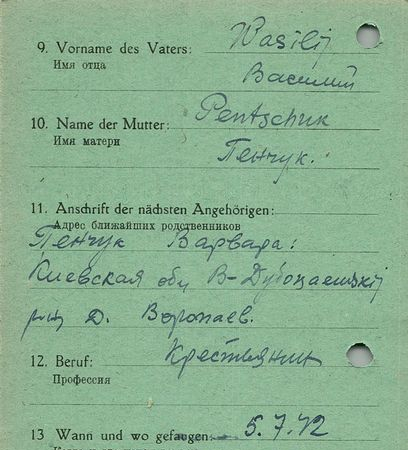 9. Vorname des Vaters: Wasilij
Имя отца
Василий
10. Name der Mutter: Pentschuk
Имя матери
Пенчук.
11. Anschrift der nächsten Angehörigen:
Адрес ближайших родственников
Пенчук Варвара:
Киевская обл
д. Воропаев.
12. Beruf: Крестьянин
Профессия
13 Wann und wo gefangen: 5.7.42